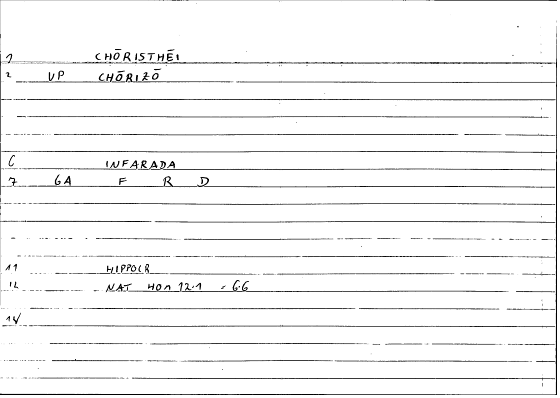 1 CHŌRISTHĒI
2 VP CHŌRIZŌ
6 INFARADA
7 GA F R D
11 HIPPOCR
12 NAT HOM 12.1 = 6.6
14